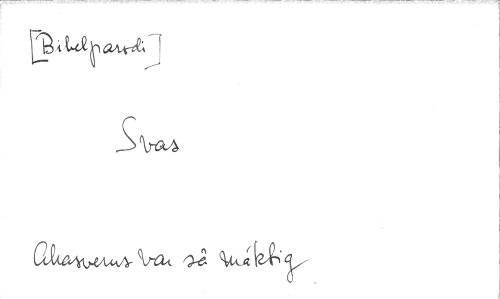 [Bibelparodi]
Svas
Ahasverus var så mäktig